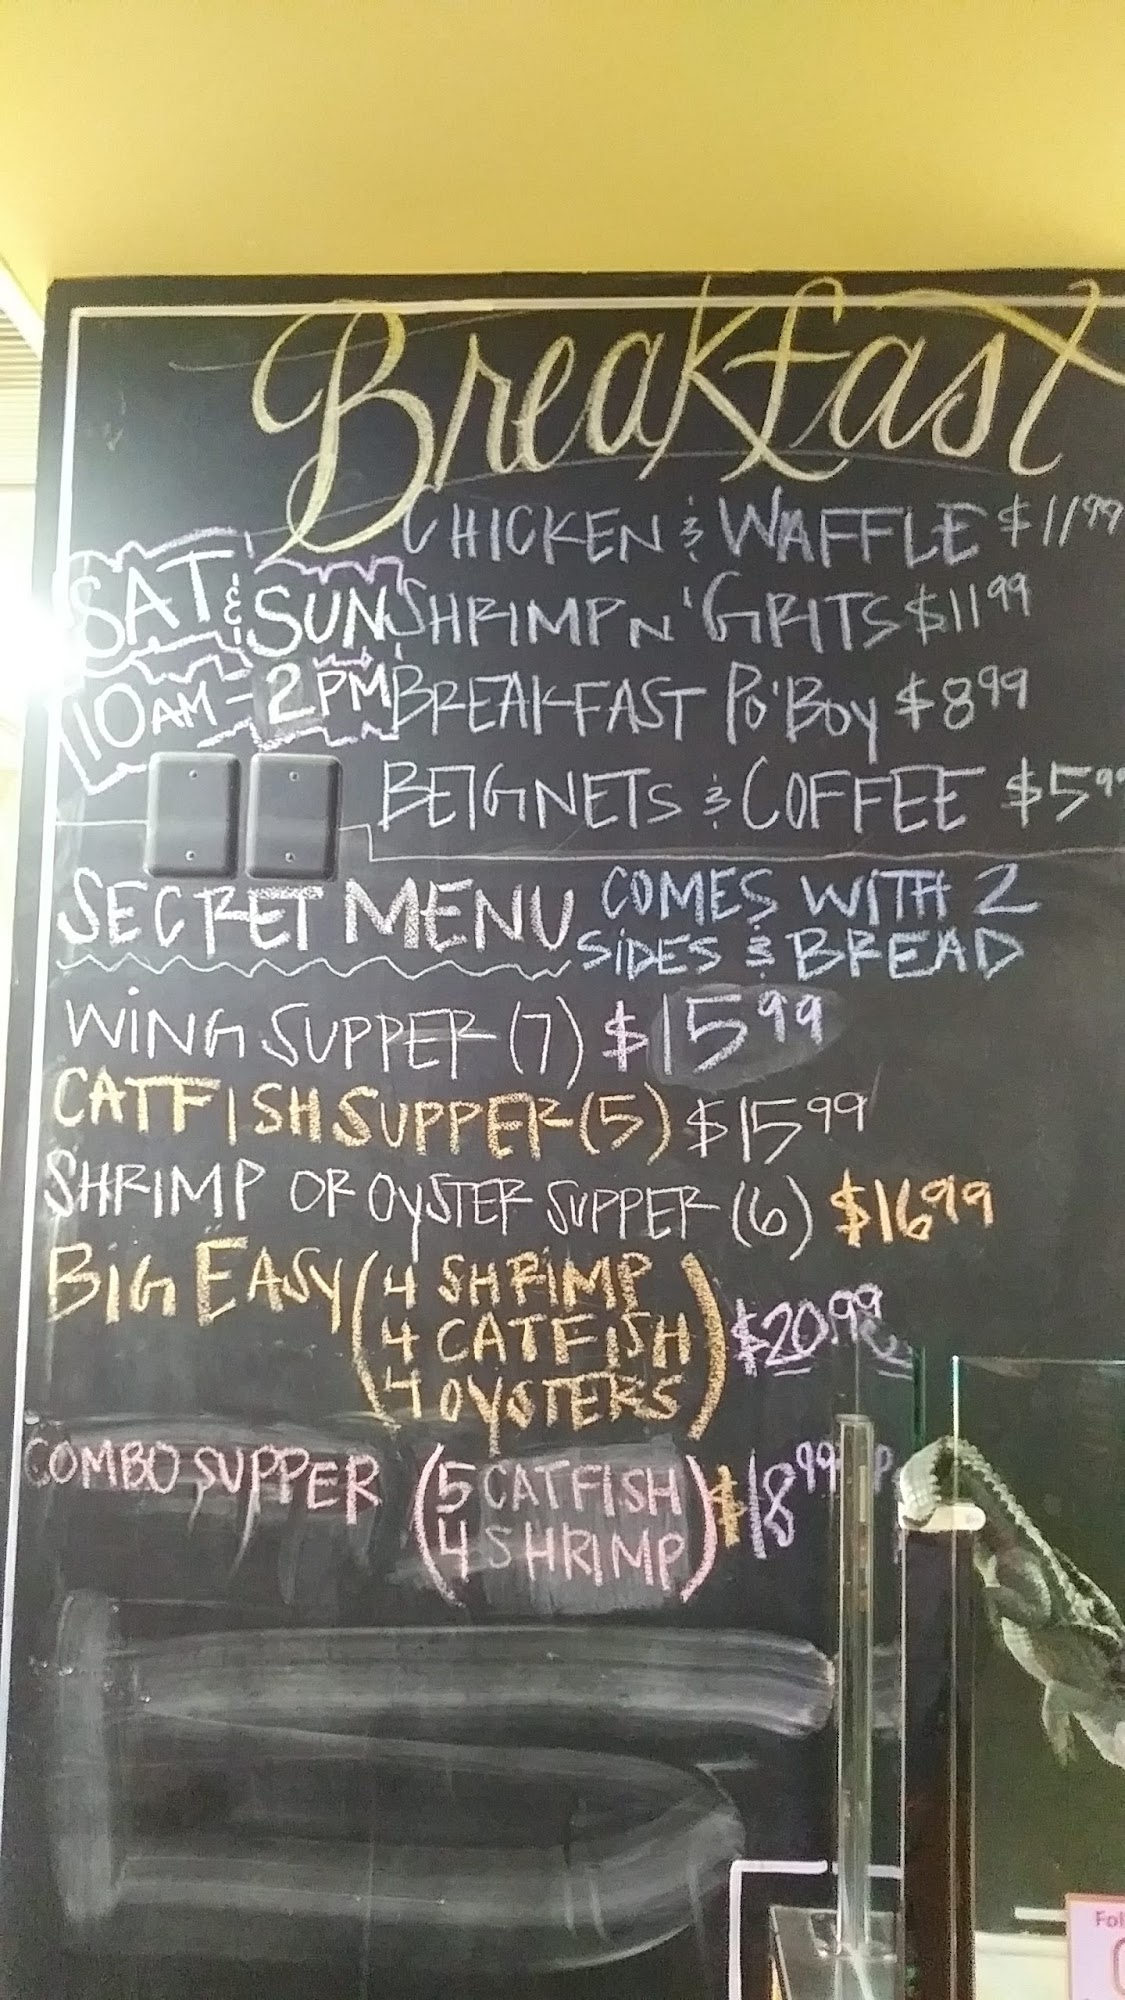 Breakfast
SAT & SUN
10AM - 2PM
CHICKEN & WAFFLE $11.99
SHRIMP N' GRITS $11.99
BREAKFAST PO'BOY $8.99
BEIGNETS & COFFEE $5.99
SECRET MENU
COMES WITH 2
SIDES & BREAD
WING SUPPER (7) $15.99
CATFISH SUPPER (5) $15.99
SHRIMP OR OYSTER SUPPER (6) $16.99
BIG EASY (4 SHRIMP
4 CATFISH
4 OYSTERS) $20.99
COMBO SUPPER (5 CATFISH
4 SHRIMP) $18.99